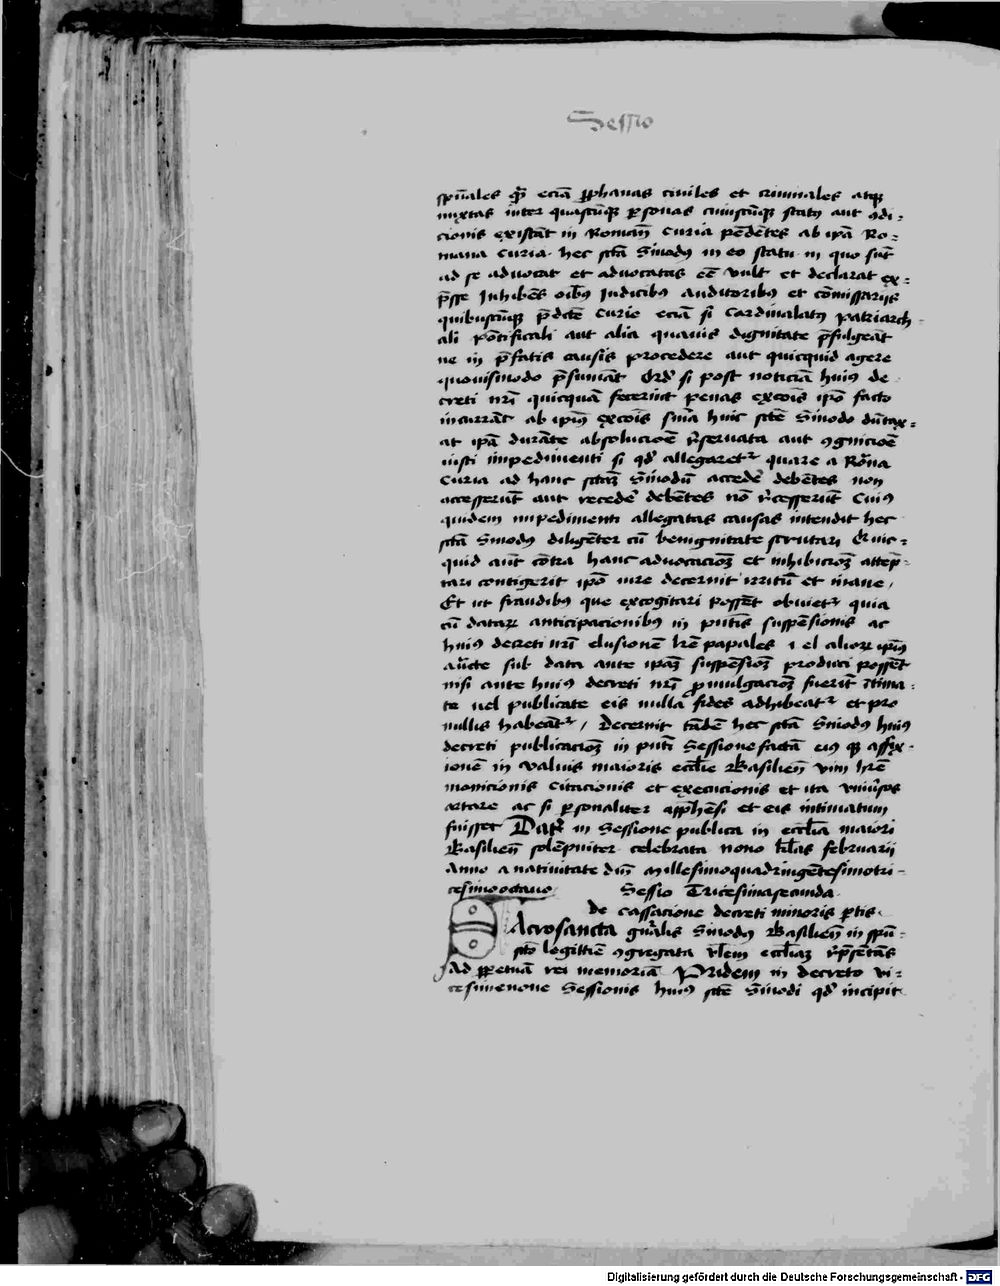 Sessio
sp̄uales q̄ꝫ eciā ꝓphanas ciuiles et criminales atqꝫ
mixtas inter quascūqꝫ ꝑsonas cuiuscūqꝫ statꝰ aut ꝯdi-
cionis existāt in Roman̄ Curia pēdētes ab ip̄a Ro-
mana Curia. hec sctā Sinodꝰ in eo statu in quo sūt
ad se aduocat et aduocatas eē vult et declarat ex-
p̄sse Inhibēs oībꝰ Iudicibꝰ auditoribꝰ et cōmissariis
quibuscūqꝫ p̄dcte Curie eciā si Cardinalatꝰ patriarch-
ali pōtificali aut alia quauis dignitate p̄fulgeāt
ne in p̄fatis causis procedere aut quicquid agere
quouismodo p̄sumāt Qd̓ si post noticiā huiꝰ de
creti nr̄i quicquā fecerīt penas excōis ip̄o facto
incurrāt ab ipiꝰ excōis sn̄ia huic scte Sinodo dūtax-
at ip̄a durāte absolucioē r̄seruata aut ꝯgnicioē
iusti impedimenti si qd̓ allegaretᷣ quare a Rōna
Curia ad hanc sctāꝫ Sinodū accedē debētes non
accesserūt aut recedē debētes nō r̄cesserūt Cuiꝰ
quidem impedimenti allegatas causas intendit hec
sctā Sinodꝰ diligēter cū benignitate scrutari Quic-
quid aūt cōtra hanc aduocacioꝫ et inhibicioꝫ attep̄-
tari contigerit ip̄o iure decernit irritū et inane /
Et ut fraudibꝰ que excogitari possēt obuietᷣ quia
cū dataꝝ anticipacionibꝰ in pn̄tis suspēsionis ac
huiꝰ decreti nr̄i elusionē lr̄e papales vel alioꝝ ipiꝰ
aūcte sub data ante ip̄aꝫ suspēsioꝫ produci possēt
nisi ante huiꝰ decreti nr̄i ꝓmulgacioꝫ fuerīt ītima-
te uel publicate eis nulla fides adhibeatᷣ et pro
nullis habeātᷣ / Decernit tādē hec sctā Sinodꝰ huiꝰ
decreti publicacioꝫ in pn̄ti Sessione factā eiꝰ qꝫ affix-
ionē in valuis maioris eccl̄ie Basilien̄ vim hr̄e
monicionis Citacionis et execucionis et ita vniūsos
artare ac si ꝑsonaliter app̄hēsi et eis intimatum
fuisset Dat̄ in Sessione publica in eccl̄ia maiori
Basilien̄ solēpniter celebrata nono kl̄as februarii
Anno a natiuitate dn̄i Millesimoquadringētesimotri-
cesimooctauo Sessio Tricesimasecunda
de cassacione decreti minoris ꝑtis
Sacrosancta gn̄ralis Sinodꝰ Basilien̄ in spū-
scto legittīe ꝯgregata vl̄em eccl̄iaꝫ r̄p̄sētās
Ad ꝑpetuā rei memoriā Pridem in decreto vi-
cesimenone Sessionis huiꝰ scte Sinodi qd̓ incipit
Digitalisierung gefördert durch die Deutsche Forschungsgemeinschaft - DFG